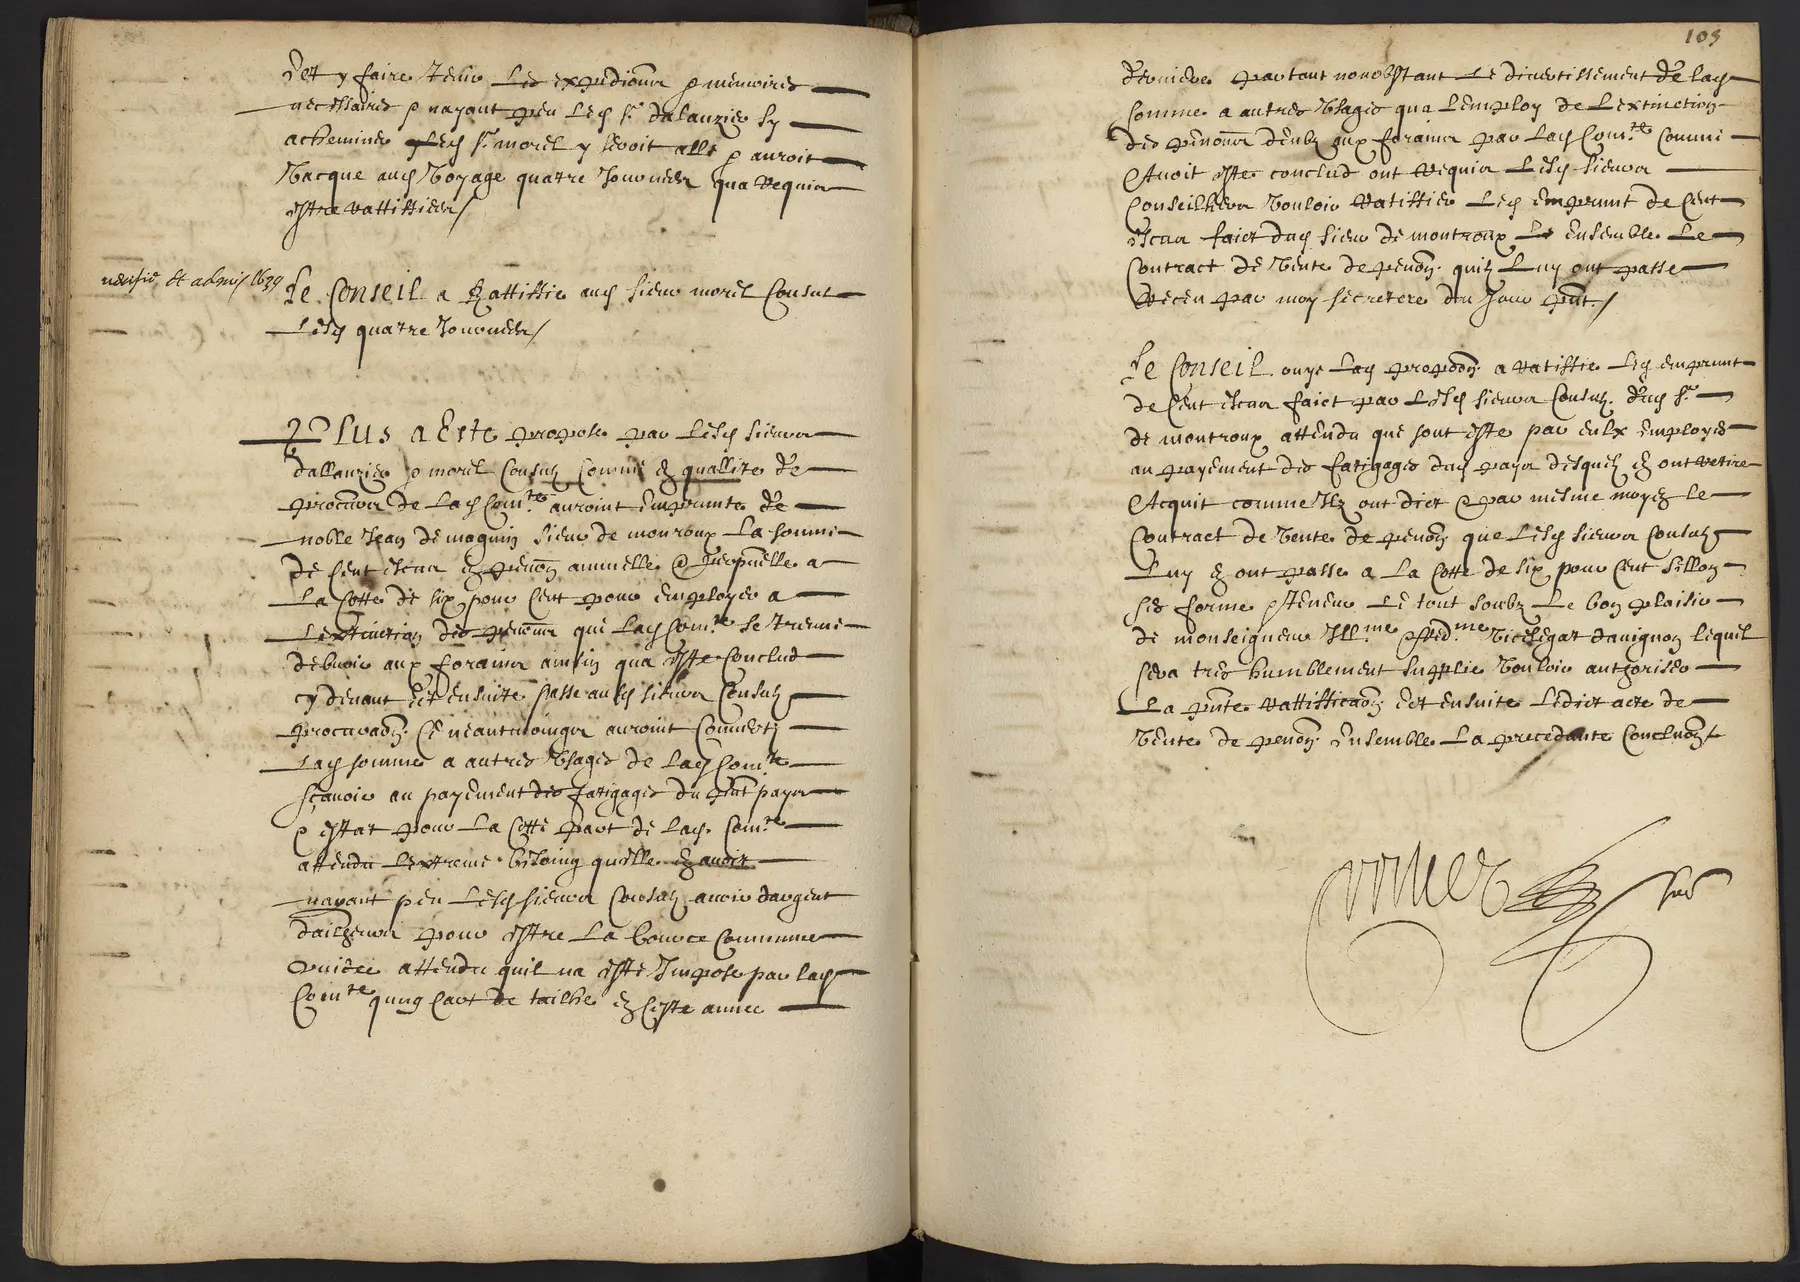 det y faire tenir les expedions & memoires
necessaires & nayant peu led sr dalauzier sy
acheminer led sr morel y seroit allé & auroit
vacque aud voyage quatre journees qua requis
estre rattiffiees/
verifie et admis 1639
Le Conseil a Rattiffie aud sieur morel Consul
lesd quatre journees/
Plus a Este propose par lesd sieurs
dallauzier & morel Consulz comme en quallite de
procurs de lad Comte auroint emprunte de
noble Jean de magnin sieur de montroux la somme
de Cent escus en pension annuelle & perpetuelle a
la Cotte de six pour Cent pour employer a
lextinction des pensions que lad Comte se treuve
debvoir aux forains ainsin qua este Conclud
cy devant et ensuite passe ausd sieurs Consulz
procuraon Ce neantmoings auroint Converty
lad somme a autres usages de lad Comte
scavoir au payement des fatigages du pnt pays
& estat pour la Cotte part de lad Comte
attendu lextreme besoing quelle en avoit
nayant peu lesd sieurs Consulz avoir dargent
dailheurs pour estre la bource commune
vuidee attendu quil na este Impose par lad
Comte qung cart de tailhe en ceste annee
103
derniere partant nonobstant le divertissement de lad
somme a autres usages qua lemploy de lextinction
des pensions deubz aux forains par lad Comte comme
Avoit este conclud ont requis lesd sieurs
Conseilhers vouloir ratiffier led emprunt de Cent
escus faict dud sieur de montroux ensemble le
Contract de vente de pension quilz luy ont passe
receu par moy secretere du jour pnt/
Le Conseil ouye lad propoon a ratiffie led emprunt
de Cent escus faict par lesd sieurs Consulz dud sr
de montroux attendu que sont este par eulx employes
au payement des fatigages dud pays desquelz en ont retire
Acquit comme Ilz ont dict & par mesme moyen le
Contract de vente de pension que lesd sieurs Consulz
luy en ont passe a la Cotte de six pour Cent sellon
ses forme & teneur le tout soubz le bon plaisir
de monseigneur Ill.me & Red.me Vicelegat davignon lequel
sera tres humblement supplie vouloir authoriser
la pnte rattifficaon et ensuite ledict acte de
vente de pension ensemble la precedante Concluon/